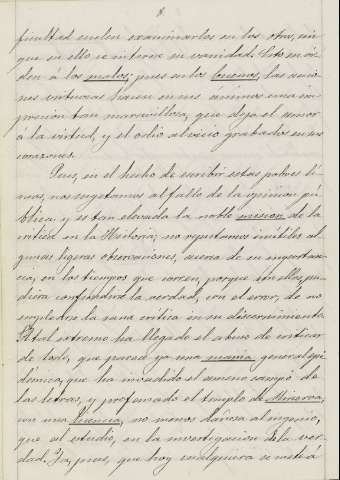 8
facultad suelen examinarlos en los otros, sin
que en ello se interese su vanidad. Esto en ór-
den á los malos; pues en los buenos, las accio-
nes virtuosas hacen en sus ánimos una im-
presion tan maravillosa, que deja el amor
á la virtud, y el odio al vicio grabados en sus
corazones.
Pues, en el hecho de escribir estas pobres lí-
neas, nos sujetamos al fallo de la opinion pú-
blica; y es tan elevada la noble mision de la
crítica en la Historia, no reputamos inútiles al-
gunas ligeras observaciones, acerca de su importan-
cia, en los tiempos que corren, porque en ellos, pu-
diera confundirse la verdad, con el error, de no
emplearse la sana crítica en su discernimiento.
A tal extremo ha llegado el abuso de criticar
de todo, que parece ya una manía general epi-
démica, que ha invadido el ameno campo de
las letras, y profanado el templo de Minerva,
con una licencia, no menos dañosa al ingenio,
que al estudio, en la investigacion de la ver-
dad. Ya, pues, que hoy cualquiera se mete á